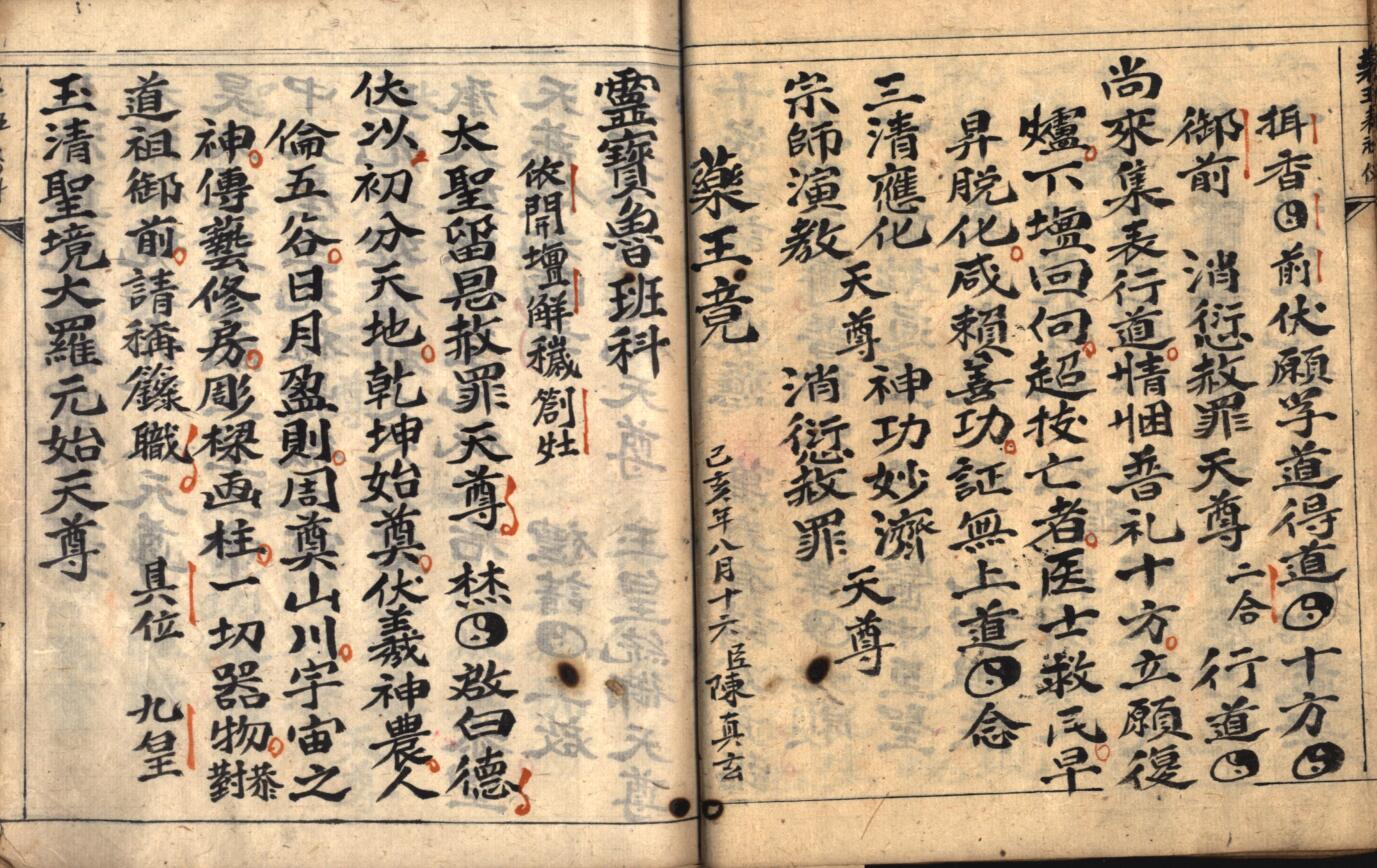 揖香☯前伏願学道得道☯十方☯
御前 消愆赦罪天尊 二合 行道☯
尚來集表行道情悃普礼十方立願復
爐下壇回向超拔亡者医士救民早
昇脱化咸頼善功証無上道☯念
三清應化 天尊 神功妙濟 天尊
宗師演教 消愆赦罪
藥王竟 己亥年八月十六臣陳真玄
靈寶魯班科
依開壇解穢劄灶
太聖畱恩赦罪天尊 焚☯啟白德
伏以初分天地乾坤始奠伏羲神農人
倫五谷日月盈則周奠山川宇宙之
神傳藝修房彫樑画柱一切器物恭對
道祖御前請稱籙職 具位 九皇
玉清聖境大羅元始天尊